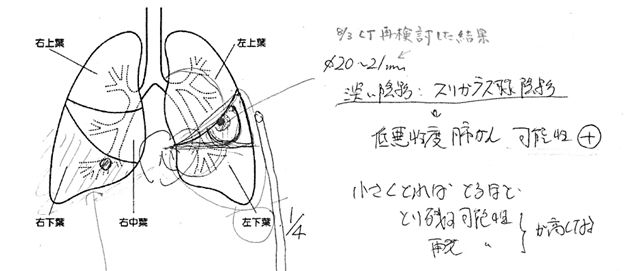 右上葉
左上葉
右下葉
右中葉
左下葉
1/4
8/3 CT 再検討した結果
φ20〜21mm
淡い陰影:スリガラス様陰影
低悪性度肺がん 可能性 ⊕
小さくとれば とるほど
とり残し可能性
再発 〃
が高くなる